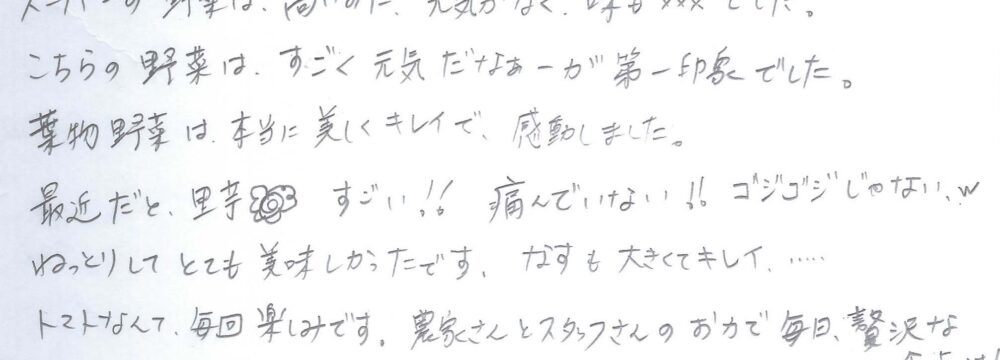 野菜は、高いのに、元気がなく、味も×××でした。
こちらの野菜は、すごく元気だなぁーが第一印象でした。
葉物野菜は、本当に美しくキレイで、感動しました。
最近だと、里芋 すごい!! 痛んでいない!! ゴジゴジじゃないw
ねっとりしてとても美味しかったです。なすも大きくてキレイ、……
トマトなんて、毎回楽しみです。農家さんとスタッフさんのお力で毎日、贅沢な